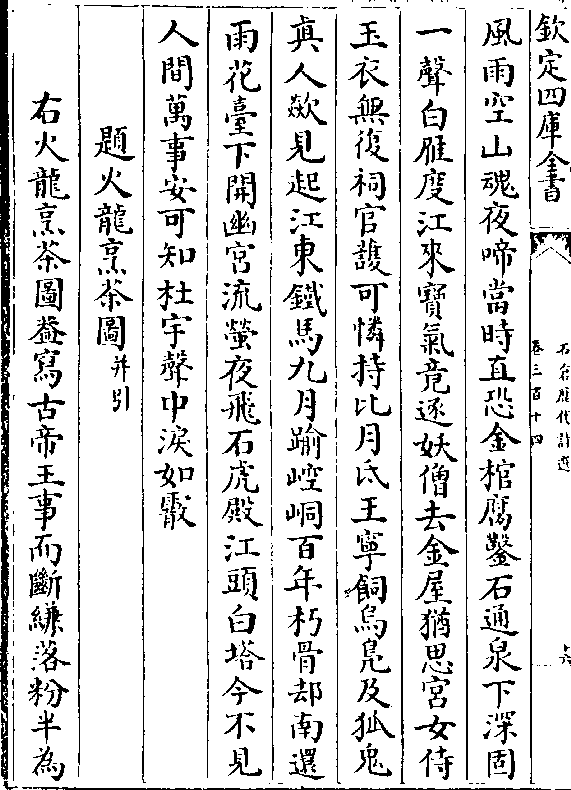 欽定四庫全書
石倉歷代詩選
卷三百十四
十六
風雨空山魂夜啼當時直恐金棺腐鑿石通泉下深固
一聲白雁度江來寶氣竟逐妖僧去金屋猶思宮女侍
玉衣無復祠官護可憐持比月氐王寧飼烏鳶及狐兔
真人欻見起江東鐵馬九月踰崆峒百年朽骨却南還
雨花臺下開幽宮流螢夜飛石虎殿江頭白塔今不見
人間萬事安可知杜宇聲中淚如霰
題火龍烹茶圖并引
右火龍烹茶圖葢寫古帝王事而斷縑落粉半為